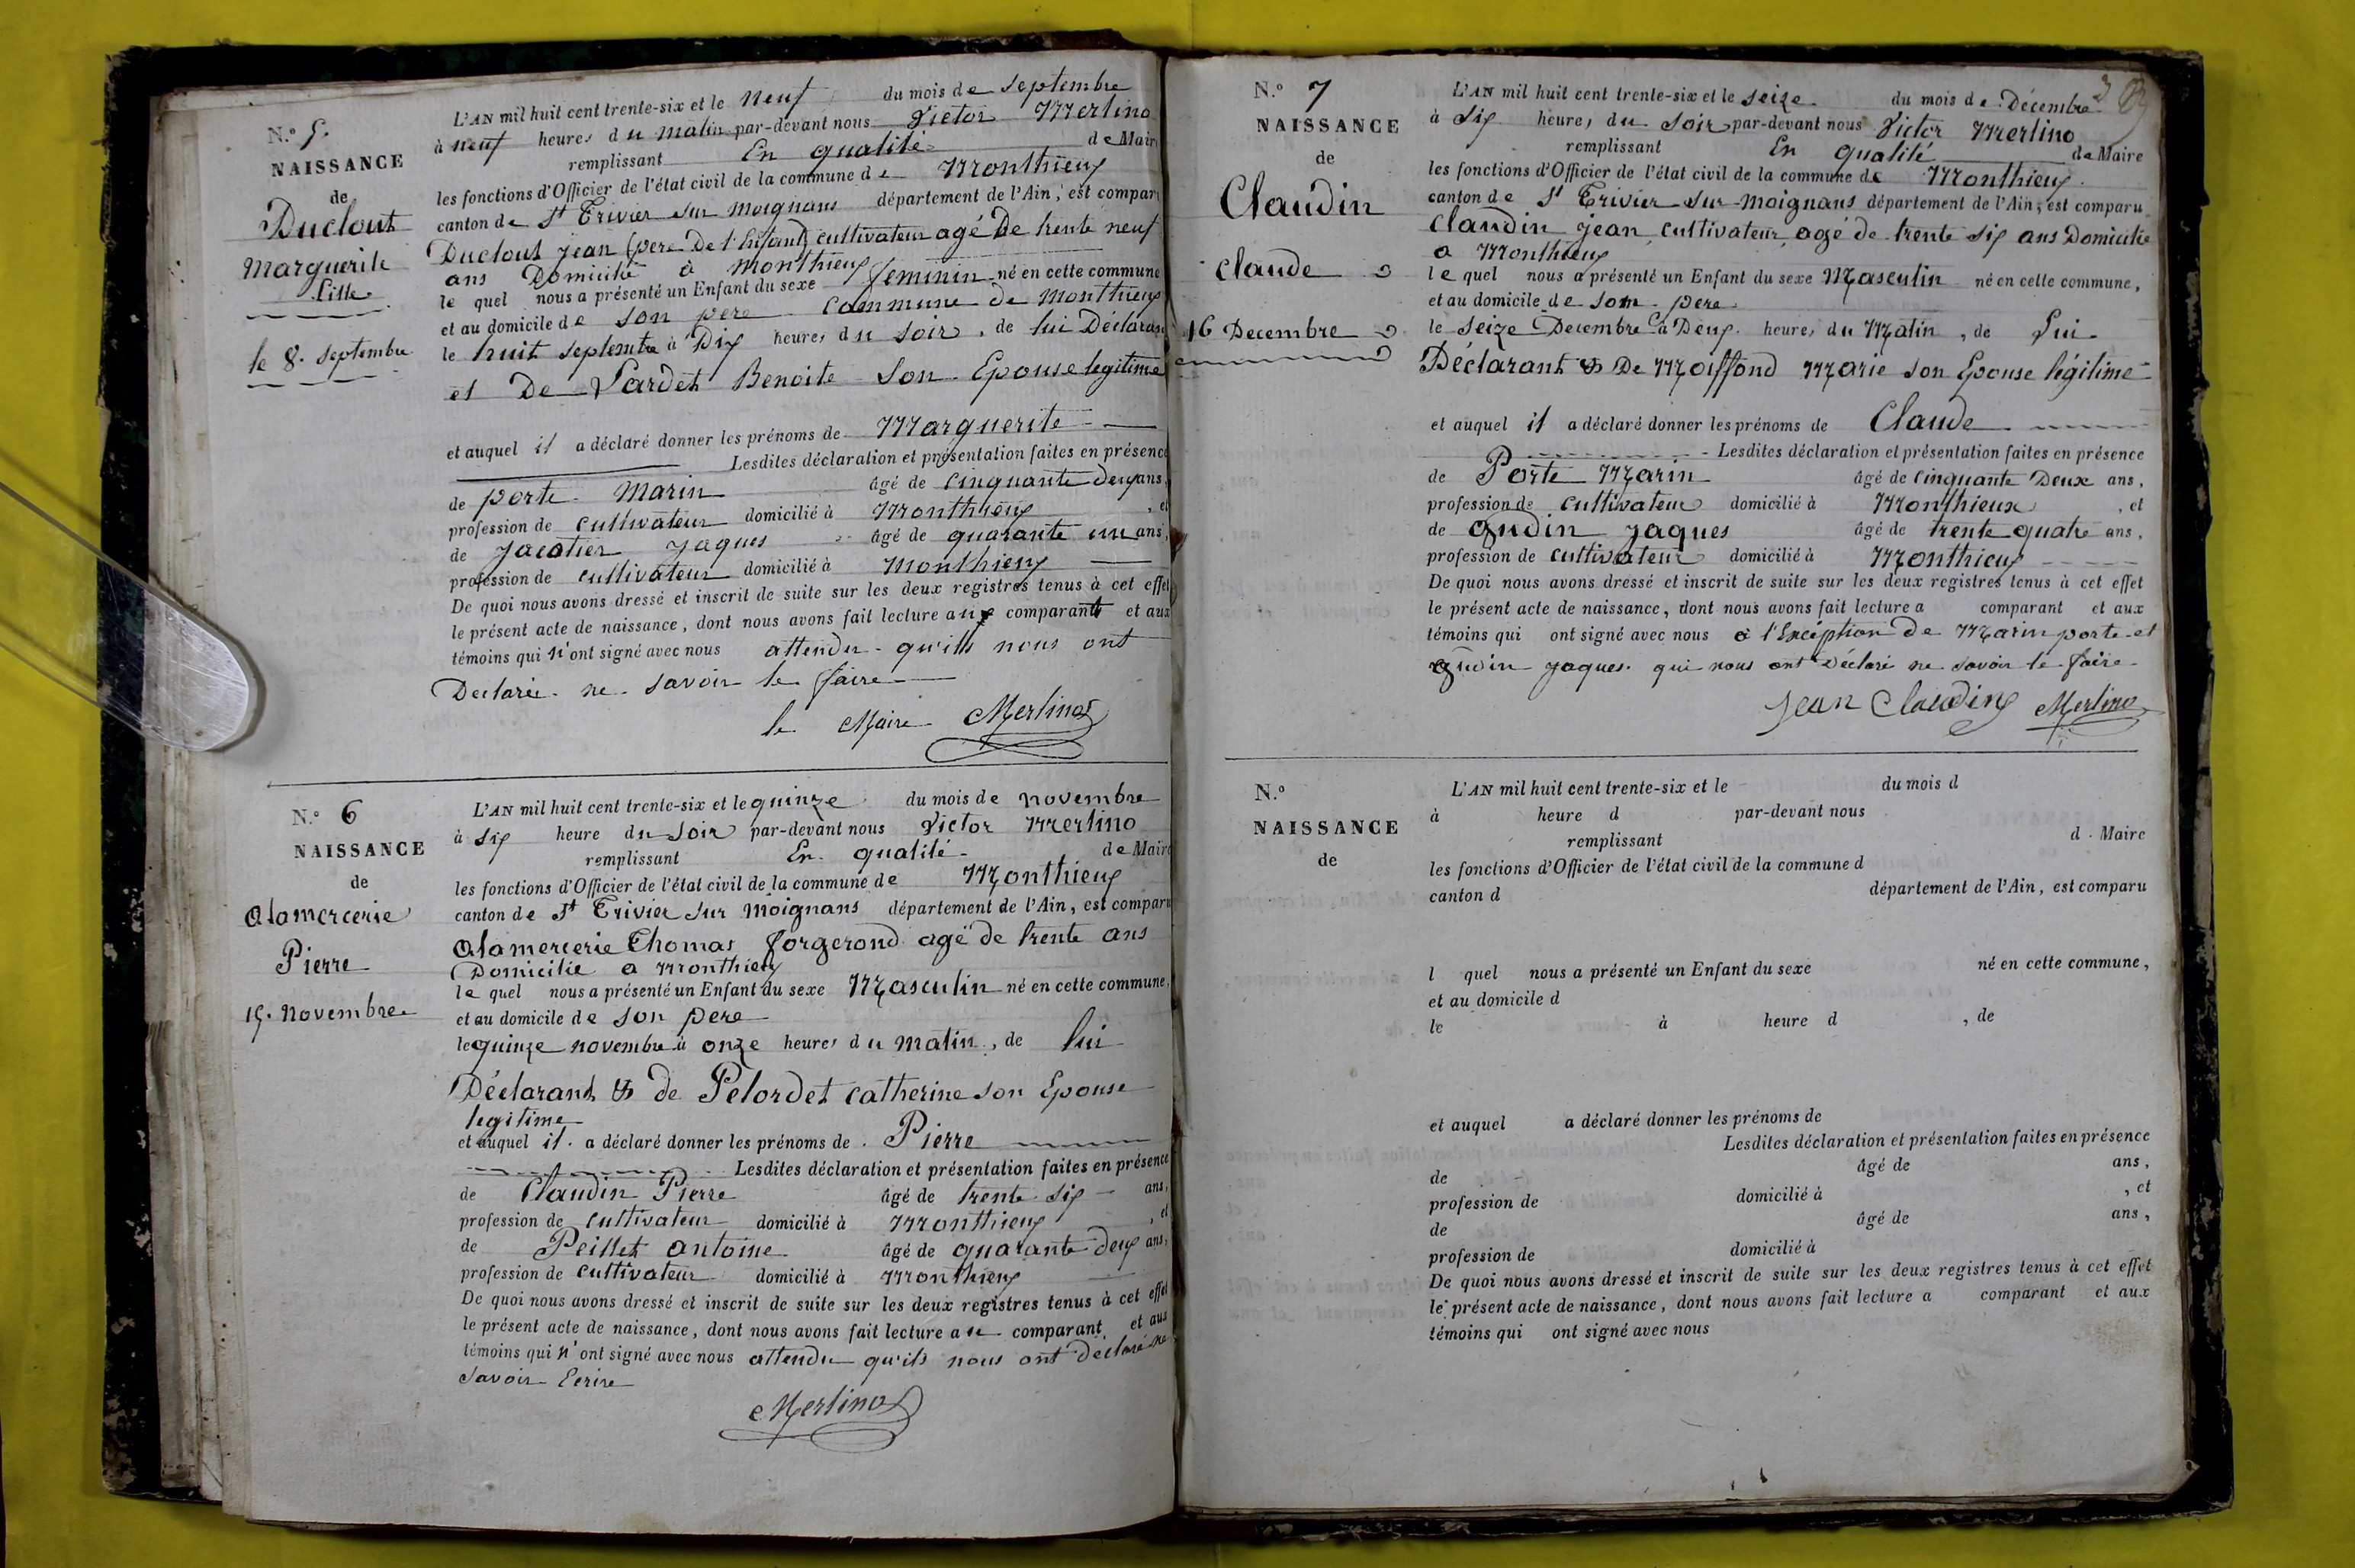 N.° 5.
NAISSANCE
de
Duclout
Marguerite
fille
le 8. septembre
L'AN mil huit cent trente-six et le neuf du mois de septembre
à neuf heures du matin par-devant nous Victor Merlino
remplissant En qualité de Maire
les fonctions d'Officier de l'état civil de la commune de Monthieux
canton de St Trivier sur moignans département de l'Ain, est comparu
Duclout jean (pere De l'Enfant) cultivateur agé De trente neuf
ans Domicilié à monthieux
le quel nous a présenté un Enfant du sexe feminin né en cette commune
et au domicile de son pere commune de Monthieux
le huit septembre à Dix heures du soir, de lui Déclarant
et De Pardet Benoite son Epouse legitime
et auquel il a déclaré donner les prénoms de Marguerite
Lesdites déclaration et présentation faites en présence
de porte Marin âgé de cinquante deux ans,
profession de cultivateur domicilié à Monthieux, et
de Jacotier jaques âgé de quarante un ans,
profession de cultivateur domicilié à Monthieux
De quoi nous avons dressé et inscrit de suite sur les deux registres tenus à cet effet
le présent acte de naissance, dont nous avons fait lecture aux comparants et aux
témoins qui n'ont signé avec nous attendu qu'ils nous ont
Declaré ne savoir le faire
le Maire Merlino
N.° 6
NAISSANCE
de
Alamercerie
Pierre
15. novembre
L'AN mil huit cent trente-six et le quinze du mois de novembre
à six heure du soir par-devant nous Victor Merlino
remplissant En qualité de Maire
les fonctions d'Officier de l'état civil de la commune de Monthieux
canton de St Trivier sur moignans département de l'Ain, est comparu
Alamercerie Thomas forgerond agé de trente ans
Domicilié a Monthieux
le quel nous a présenté un Enfant du sexe Masculin né en cette commune,
et au domicile de son pere
le quinze novembre à onze heures du matin, de lui
Déclarant & de Pelordet catherine son Epouse
legitime
et auquel il a déclaré donner les prénoms de Pierre
Lesdites déclaration et présentation faites en présence
de Claudin Pierre âgé de trente six ans,
profession de cultivateur domicilié à Monthieux, et
de Peillet antoine âgé de quarante deux ans,
profession de cultivateur domicilié à Monthieux
De quoi nous avons dressé et inscrit de suite sur les deux registres tenus à cet effet
le présent acte de naissance, dont nous avons fait lecture au comparant et aux
témoins qui n'ont signé avec nous attendu qu'ils nous ont declaré ne
savoir Ecrire
Merlino
N.° 7
NAISSANCE
de
Claudin
claude
16 Decembre
L'AN mil huit cent trente-six et le seize du mois de Décembre
à six heures du soir par-devant nous Victor Merlino
remplissant En qualité de Maire
les fonctions d'Officier de l'état civil de la commune de Monthieux
canton de St Trivier sur moignans département de l'Ain, est comparu
claudin jean cultivateur agé de trente six ans Domicilié
a Monthieux
le quel nous a présenté un Enfant du sexe Masculin né en cette commune,
et au domicile de son pere
le seize Decembre à Deux heures du Matin, de lui
Déclarant & De Moiffond Marie son Epouse légitime
et auquel il a déclaré donner les prénoms de Claude
Lesdites déclaration et présentation faites en présence
de Porte Marin âgé de cinquante Deux ans,
profession de cultivateur domicilié à Monthieux, et
de gudin jaques âgé de trente quatre ans,
profession de cultivateur domicilié à Monthieux
De quoi nous avons dressé et inscrit de suite sur les deux registres tenus à cet effet
le présent acte de naissance, dont nous avons fait lecture a comparant et aux
témoins qui ont signé avec nous à l'Exception de Marin porte et
gudin jaques qui nous ont Déclaré ne savoir le faire
jean Claudin Merlino
N.°
NAISSANCE
de
L'AN mil huit cent trente-six et le du mois d
à heure d par-devant nous
remplissant d Maire
les fonctions d'Officier de l'état civil de la commune d
canton d département de l'Ain, est comparu
l quel nous a présenté un Enfant du sexe né en cette commune,
et au domicile d
le à heure d , de
et auquel a déclaré donner les prénoms de
Lesdites déclaration et présentation faites en présence
de âgé de ans,
profession de domicilié à , et
de âgé de ans,
profession de domicilié à
De quoi nous avons dressé et inscrit de suite sur les deux registres tenus à cet effet
le présent acte de naissance, dont nous avons fait lecture a comparant et aux
témoins qui ont signé avec nous